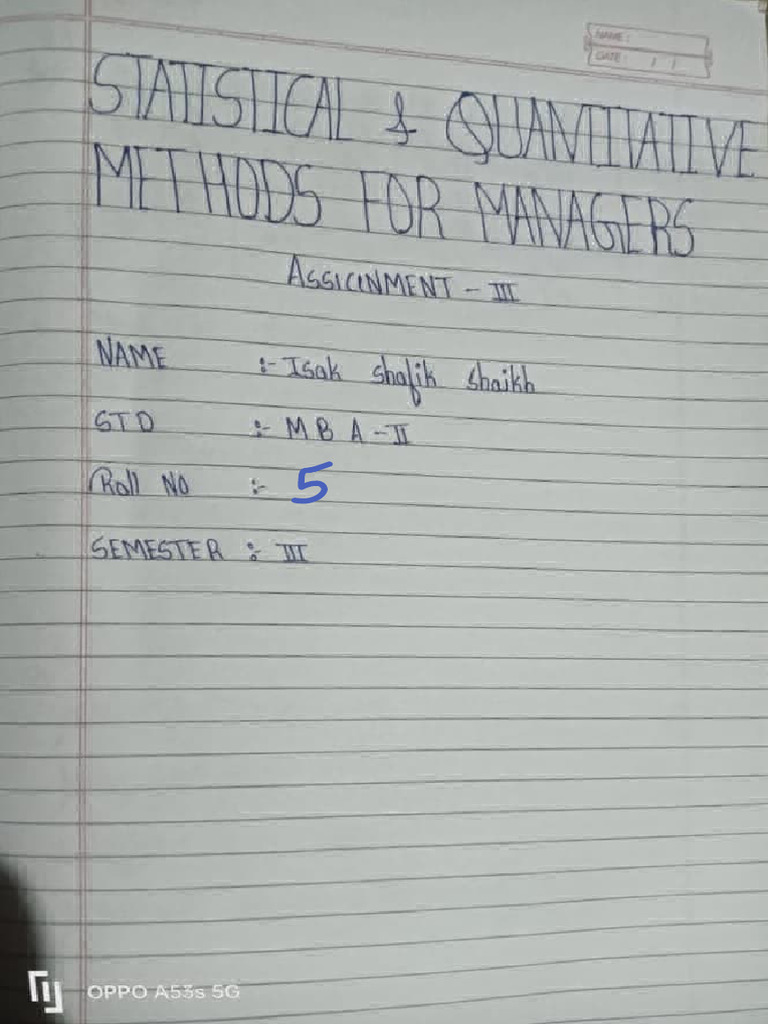 NAME:
DATE: / /
STATISTICAL & QUANTITATIVE
METHODS FOR MANAGERS
ASSIGNMENT - III
NAME :- Isak Shafik Shaikh
STD :- M B A - II
Roll No :- 5
SEMESTER :- III
OPPO A53s 5G